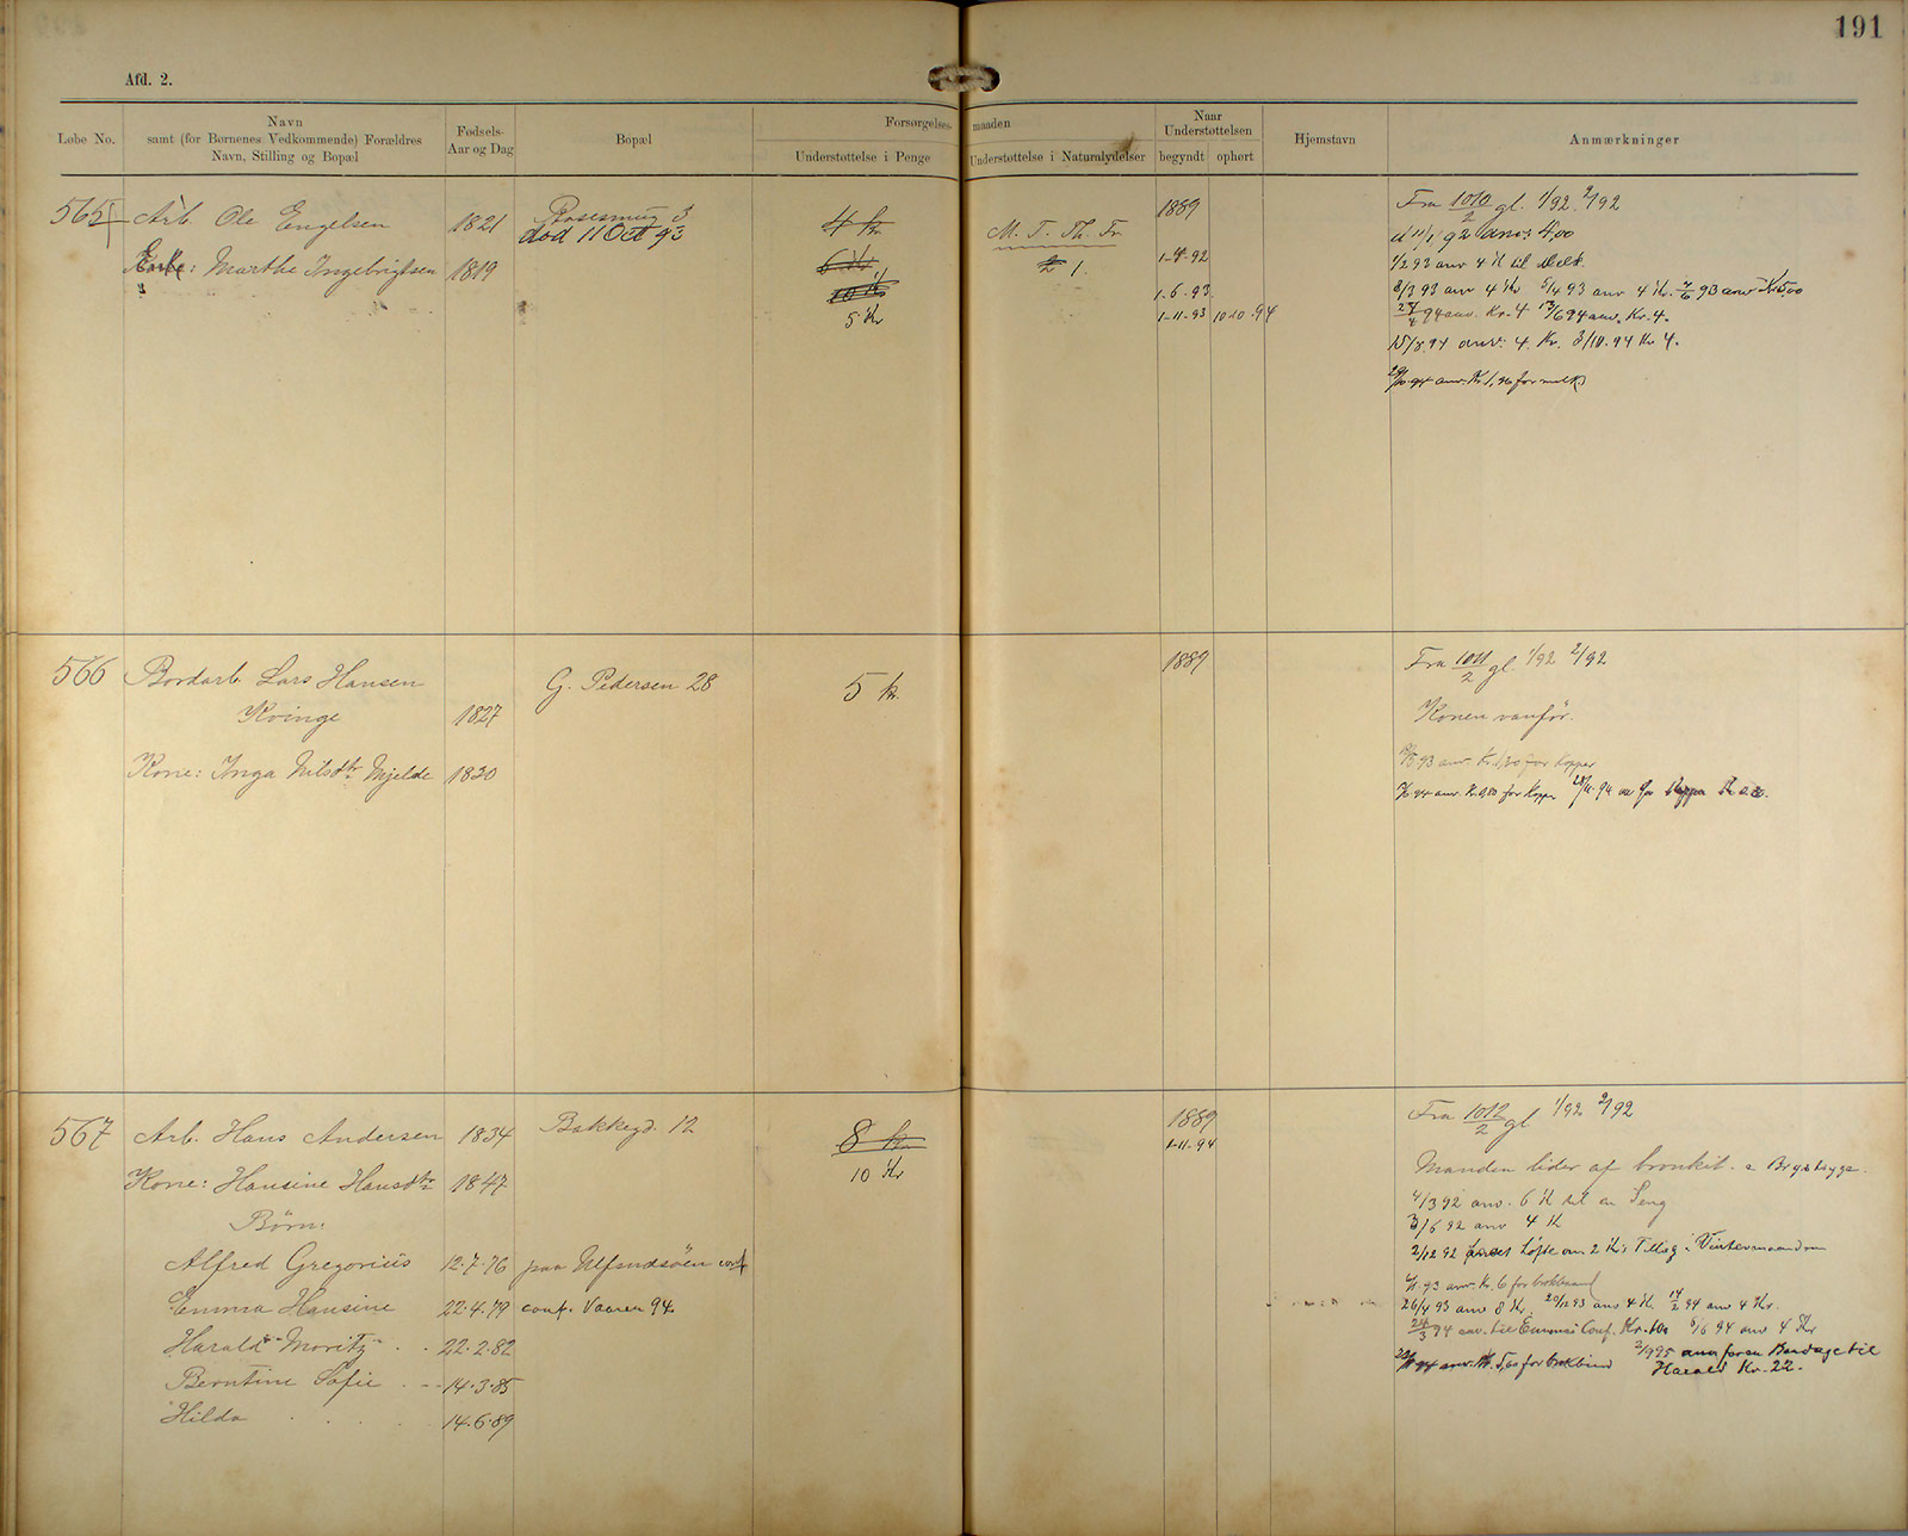 191
Afd. 2.
Løbe No.
Navn
samt (for Børnenes Vedkommende) Forældres
Navn, Stilling og Bopæl
Fødsels-
Aar og Dag
Bopæl
Forsørgelses-
maaden
Understøttelse i Penge
Understøttelse i Naturalydelser
Naar
Understøttelsen
begyndt
ophørt
Hjemstavn
Anmærkninger
565
Arb. Ole Engelsen
1821
død 11 Oct 93
4 kr
M. T. Th. Fr.
1889
Fra 1010/2 gl. 1/92 2/92
11/1 92 anv: 4,00
Enke: Marthe Ingebrigtsen
1819
2 1.
1-4-92
1/2 93 anv 4 K til Melk.
10 K
1.6.93
8/3 93 anv 4 Kr 5/4 93 anv 4 Kr. 7/6 93 anv Kr 5,00
5 Kr
1-11-93
10.10.94
94 anv. Kr. 4 13/6 94 anv. Kr. 4.
15/8 94 anv: 4 Kr. 3/10.94 Kr 4.
94 anv. Kr. 1, for melk
566
Bordarb. Lars Hansen
Kvinge
1827
G. Pedersen 28
5 kr.
1889
Fra 1011/2 gl. 1/92 2/92
Konen vanfør.
Kone: Inga Nilsdtr Mjelde
1830
93 anv. Kr. 1,20 for Kopper
94 anv. Kr. 0,80 for Kopper 94
567
Arb. Hans Andersen
1834
Bakkegd. 12
8 kr
1889
Fra 1012/2 gl 1/92 2/92
1-11-94
10 Kr
Kone: Hansine Hansdtr
1847
Manden lider af bronkit. Brystsyge.
Børn:
4/3 92 anv. 6 K til en Seng
3/6 92 anv 4 K
Alfred Gregorius
12.7.76
paa Ulfsnesøen conf
2/12 92 Løfte om 2 Kr's Tillæg i Vintermaanderne
93 anv. Kr. 6 for brokbaand
Emma Hansine
22.4.79
conf. Vaaren 94
26/4 93 anv 8 Kr. 20/12 93 anv 4 K. 14/2 94 anv 4 Kr.
24/3 94 anv. til Emmas Conf. Kr. 10 6/6 94 anv 4 Kr
Harald Moritz
22.2.82
94 anv. Kr. 5,00 for brokbind
2/9 95 anv for en Bandage til
Harald Kr. 22.
Berntine Sofie
14.3.85
Hilda
14.6.89